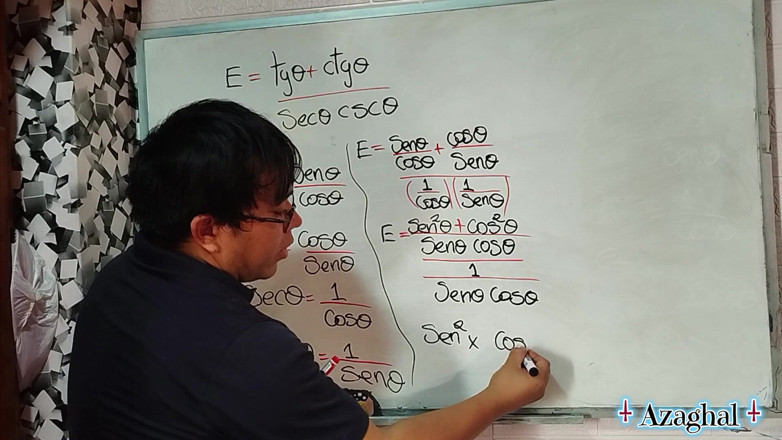 E = tgθ + ctgθ
Secθ cscθ
Senθ
Cosθ
Cosθ
Senθ
Secθ = 1
Cosθ
= 1
Senθ
E = Senθ + Cosθ
Cosθ Senθ
(1) (1)
Cosθ Senθ
E = Sen²θ + Cos²θ
Senθ Cosθ
1
Senθ Cosθ
Sen² x Cos
Azaghal